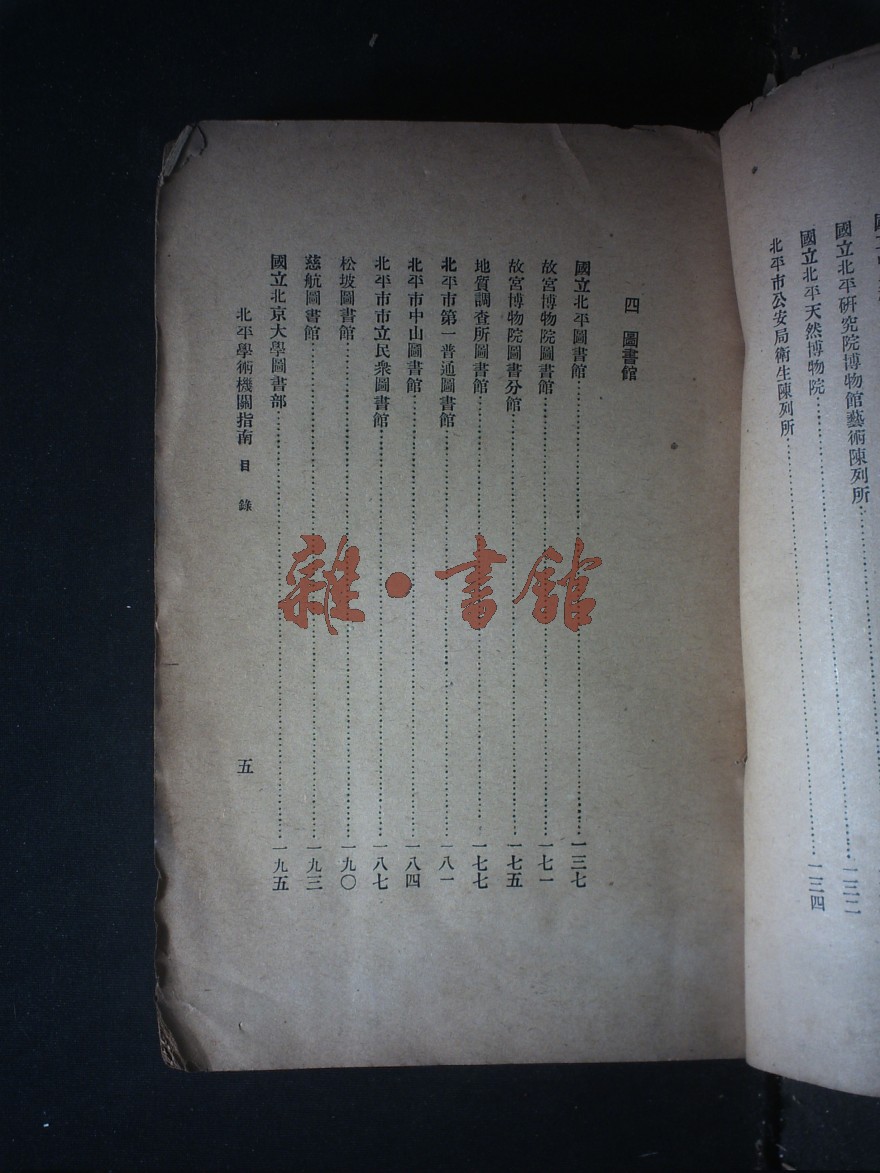 國立北平研究院博物館藝術陳列所……一三二
國立北平天然博物院……一三四
北平市公安局衛生陳列所……
四 圖書館
國立北平圖書館……一三七
故宮博物院圖書館……一七一
故宮博物院圖書分館……一七五
地質調查所圖書館……一七七
北平市第一普通圖書館……一八一
北平市中山圖書館……一八四
北平市市立民衆圖書館……一八七
松坡圖書館……一九〇
慈航圖書館……一九三
國立北京大學圖書部……一九五
北平學術機關指南 目 錄 五
雜·書館